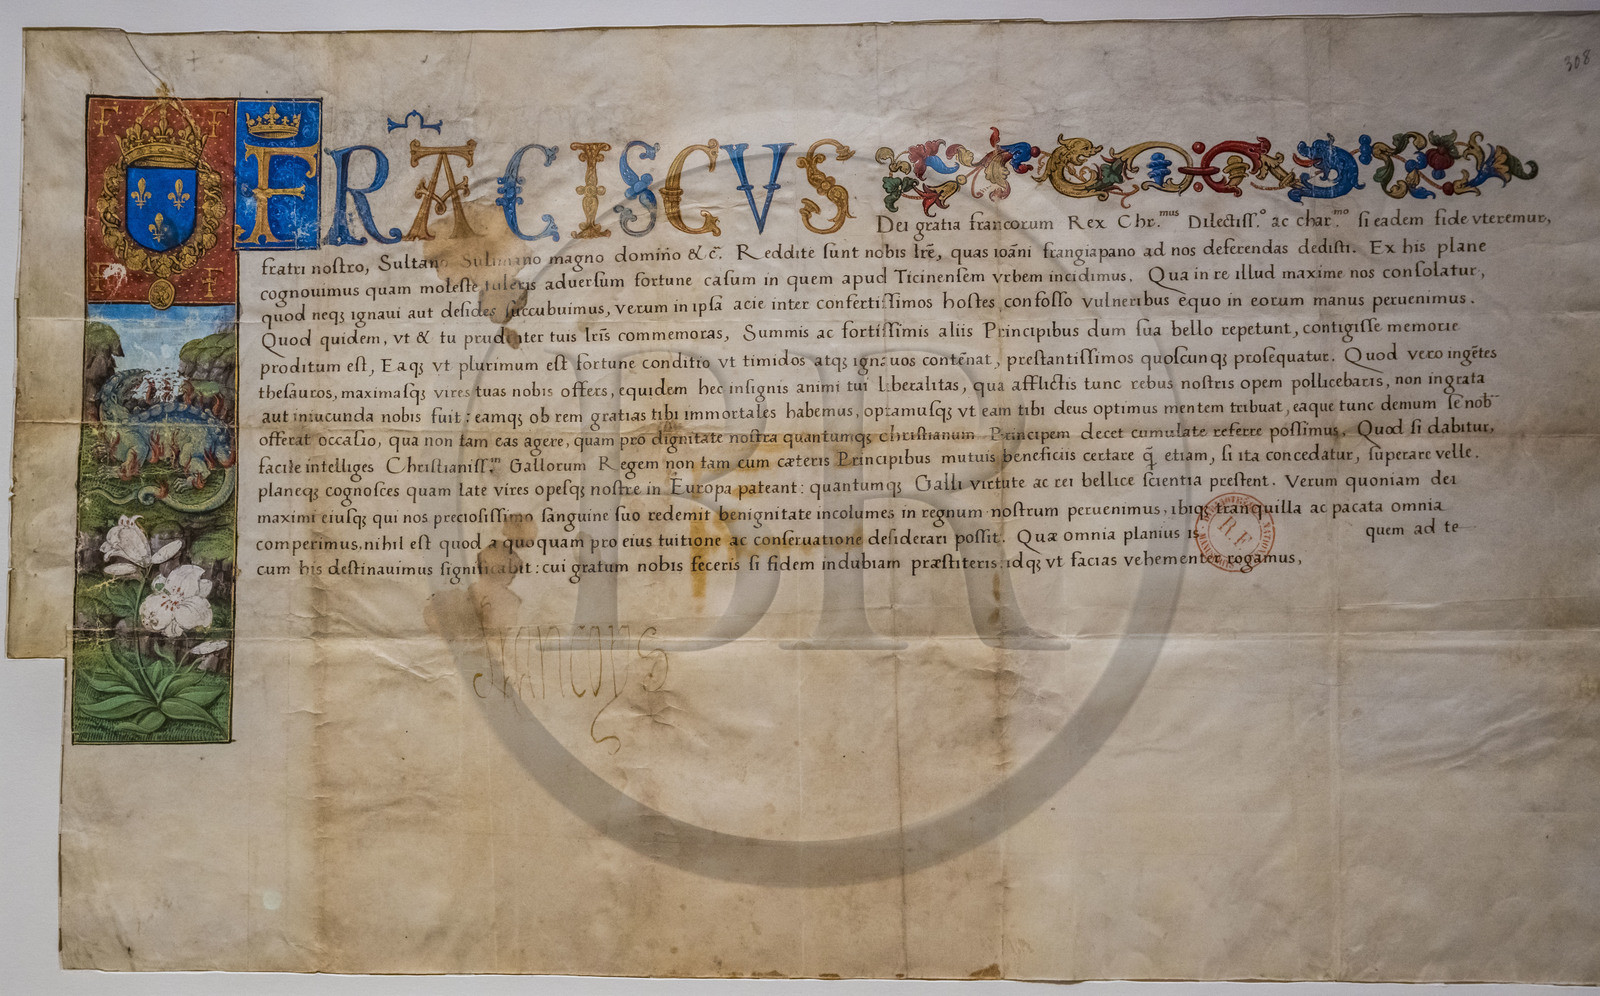 308
F F
FRA͂CISCVS
Dei gratia francorum Rex Chr.mus Dilectiss.o ac char.mo si eadem fide vteremur,
fratri nostro, Sultano Sulimano magno domin̄o & c̄. Reddite sunt nobis lr̄e, quas ioān̄i frangiapano ad nos deferendas dedisti. Ex his plane
cognouimus quam moleste tuleris aduersum fortune casum in quem apud Ticinensem vrbem incidimus. Qua in re illud maxime nos consolatur,
quod neqȝ ignaui aut desides succubuimus, verum in ipsa acie inter confertissimos hostes, confosso vulneribus equo in eorum manus peruenimus.
Quod quidem, vt & tu prudenter tuis lr̄is commemoras, Summis ac fortissimis aliis Principibus dum sua bello repetunt, contigisse memorie
proditum est, Eaqȝ vt plurimum est fortune conditio vt timidos atqȝ ignauos contēnat, prestantissimos quoscunqȝ prosequatur. Quod vero ingētes
thesauros, maximasqȝ vires tuas nobis offers, equidem hec insignis animi tui liberalitas, qua afflictis tunc rebus nostris opem pollicebaris, non ingrata
aut iniucunda nobis fuit: eamqȝ ob rem gratias tibi immortales habemus, optamusqȝ vt eam tibi deus optimus mentem tribuat, eaque tunc demum se nob
offerat occasio, qua non tam eas agere, quam pro dignitate nostra quantumqȝ christianum Principem decet cumulate referre possimus. Quod si dabitur,
facile intelliges Christianiss.m Gallorum Regem non tam cum cæteris Principibus mutuis beneficiis certare q̄ etiam, si ita concedatur, superare velle.
planeqȝ cognosces quam late vires opesqȝ nostre in Europa pateant: quantumqȝ Galli virtute ac rei bellice scientia prestent. Verum quoniam dei
maximi eiusqȝ qui nos preciosissimo sanguine suo redemit benignitate incolumes in regnum nostrum peruenimus, ibiqȝ tranquilla ac pacata omnia
comperimus, nihil est quod a quoquam pro eius tuitione ac conseruatione desiderari possit. Quæ omnia planius is quem ad te
cum his destinauimus significabit: cui gratum nobis feceris si fidem indubiam præstiteris: idqȝ vt facias vehementer rogamus,
R.F
francoys
BR